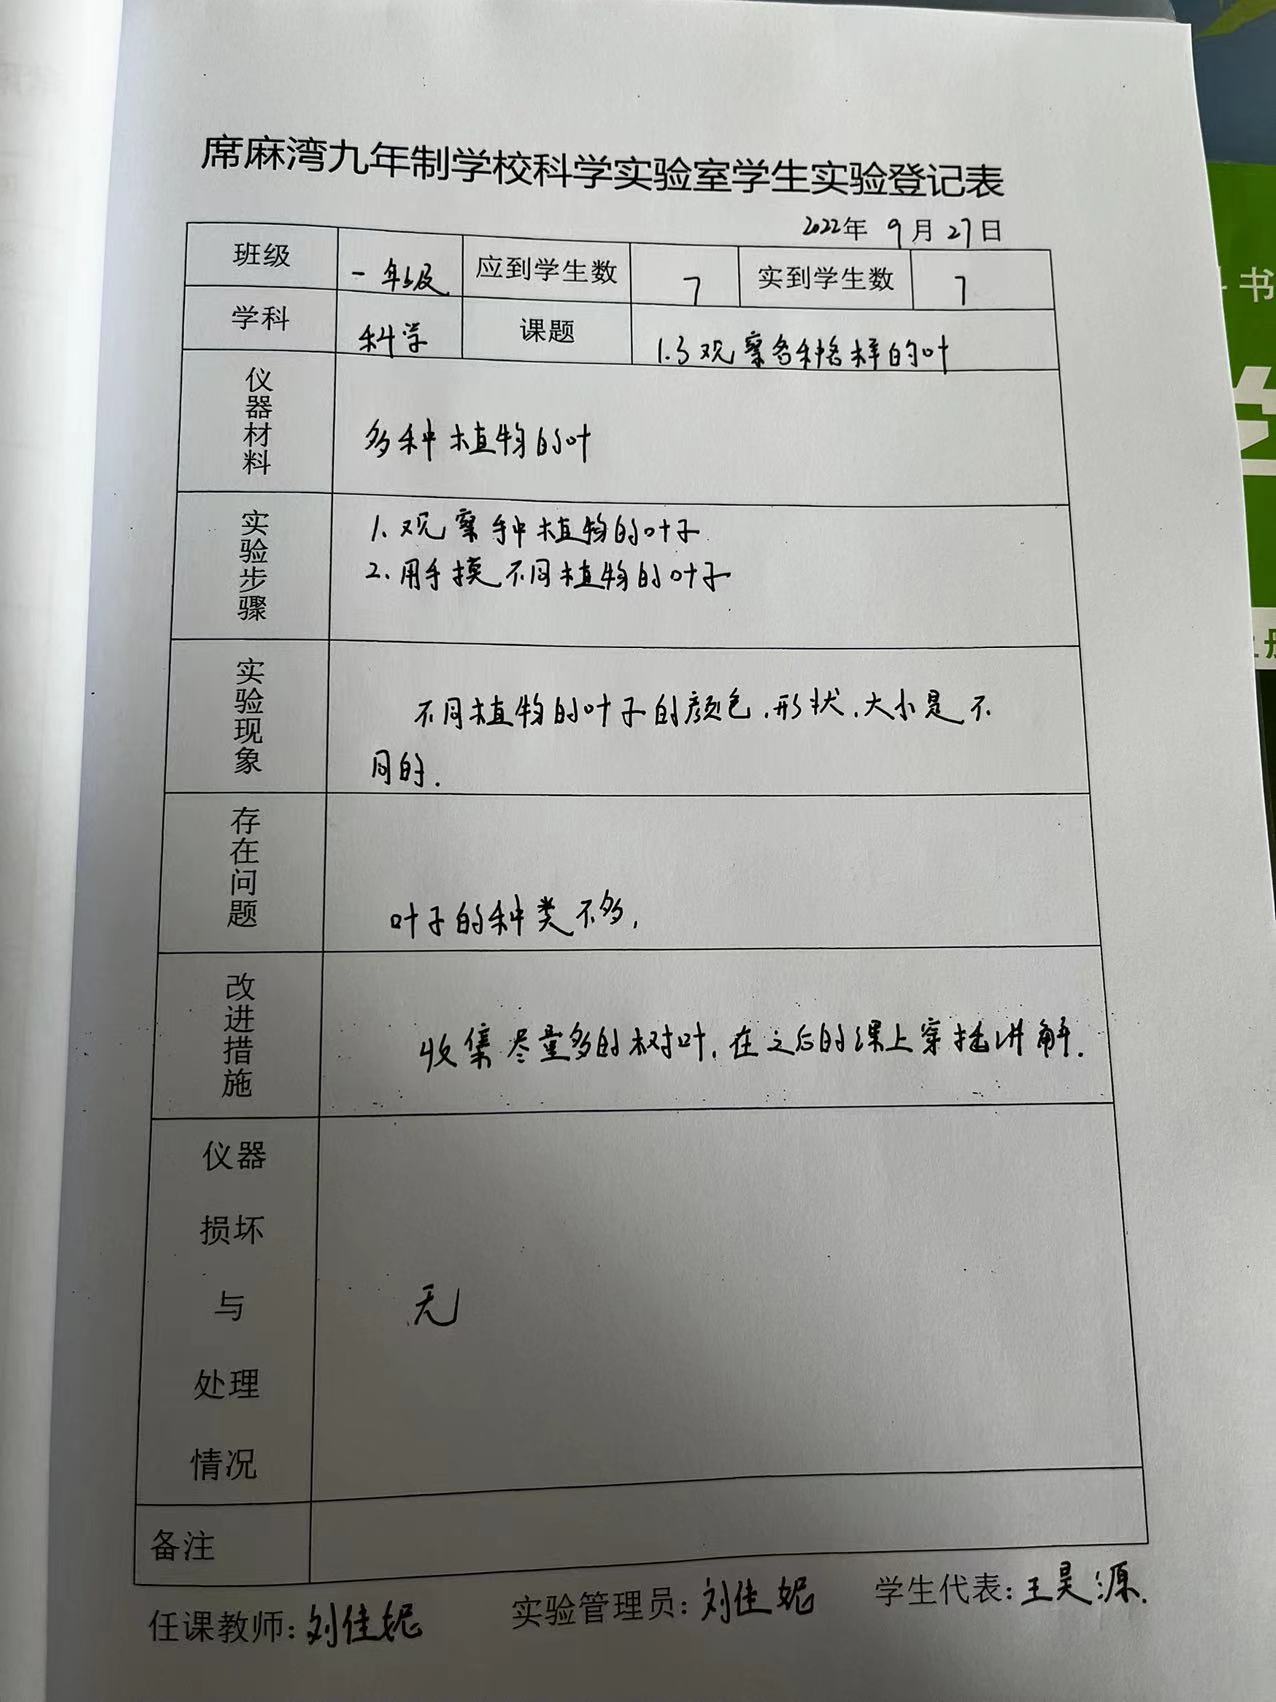 席麻湾九年制学校科学实验室学生实验登记表
2022年 9月 27日
班级 一年级 应到学生数 7 实到学生数 7
学科 科学 课题 1.3观察各种各样的叶
仪器材料 多种植物的叶
实验步骤 1.观察种植物的叶子
2.用手摸不同植物的叶子
实验现象 不同植物的叶子的颜色.形状.大小是不
同的.
存在问题 叶子的种类不多,
改进措施 收集尽量多的树叶,在之后的课上穿插讲解.
仪器
损坏
与
处理
情况
无
备注
任课教师:刘佳妮 实验管理员:刘佳妮 学生代表:王昊源.
书
册